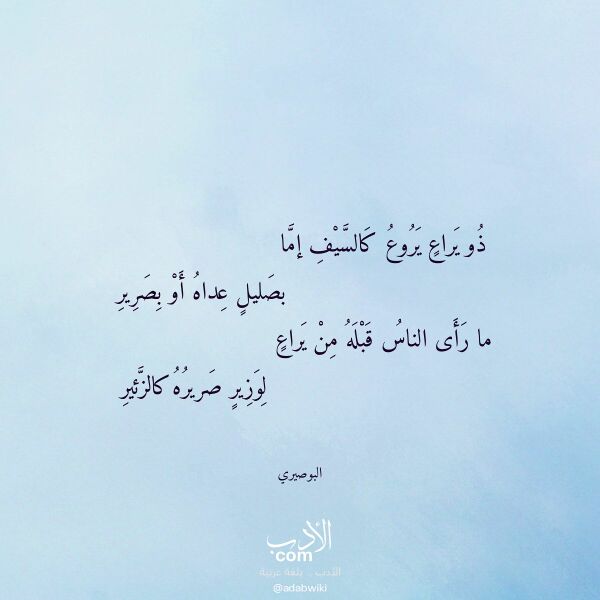 ذُو يَراعٍ يَرُوعُ كَالسَّيْفِ إمَّا
بصَليلٍ عِداهُ أَوْ بِصَرِيرِ
ما رَأَى الناسُ قَبْلَهُ مِنْ يَراعٍ
لِوَزِيرٍ صَريرُهُ كالزَّئيرِ
البوصيري
الأدب
com
الأدب .. بلغة عربية
@adabwiki